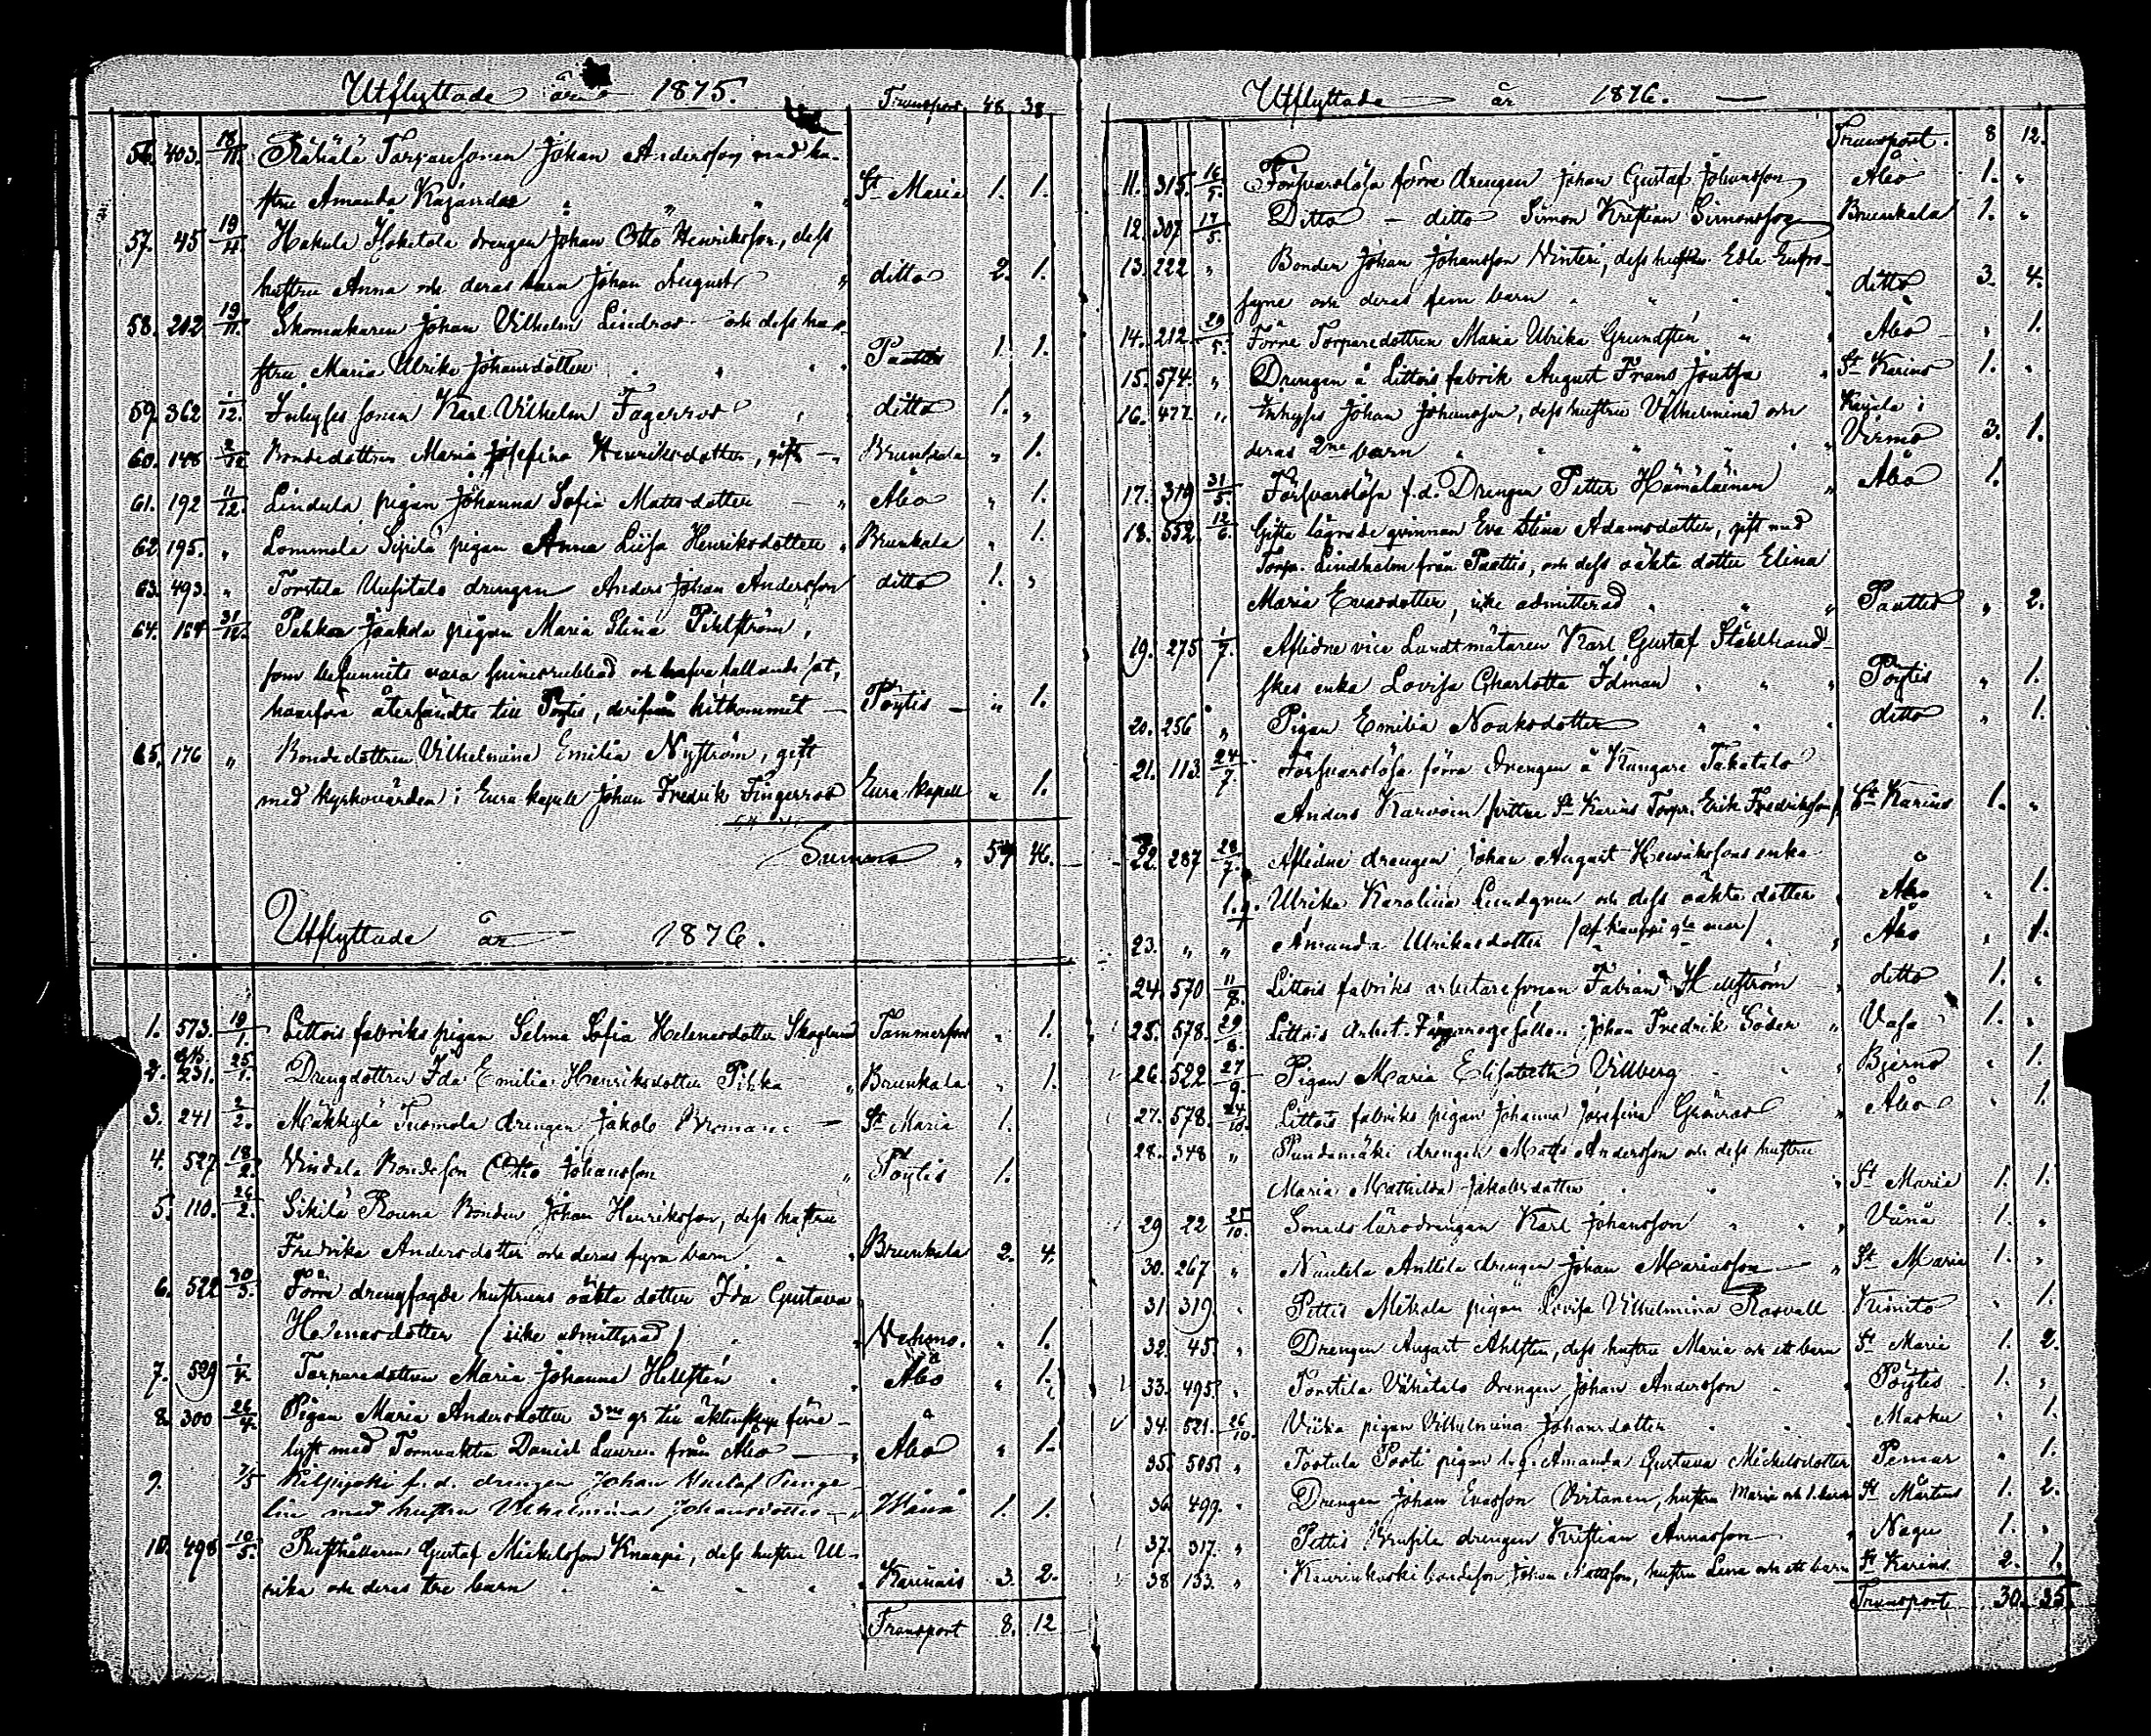 Utflyttade år 1875. Transport. 48. 38
56. 403. 18/11. Rähälä Torparesonen Johan Andersson med hu-
stru Amanda Kajander " " " St Maria 1. 1.
57. 45 19/11. Hakula Kokkola drengen Johan Otto Henriksson, dess
hustru Anna och deras barn Johan August " ditto 2. 1.
58. 212 19/11. Skomakaren Johan Vilhelm Lindros och dess hu-
stru Maria Ulrika Johansdotter . . . Paattis 1. 1.
59. 362 1/12. Inhyses sonen Karl Vilhelm Fagerros " ditto 1. "
60. 148 2/12 Bondedottren Maria Josefina Henriksdotter, gift — Brunkala " 1.
61. 192 11/12. Lindula pigan Johanna Sofia Mattsdotter — " Åbo " 1.
62. 195. " Lommola Sipilä pigan Anna Lisa Henriksdotter " Brunkala " 1.
63. 493. " Torstila Uusitalo drengen Anders Johan Andersson ditto 1. "
64. 164 31/12. Pahka Jaakola pigan Maria Stina Pihlström,
som befunnits vara sinnesrubbad och fallande sot,
hvarföre återsändts till Pöytis, derifrån hitkommit — Pöytis — " 1.
65. 176 " Bondedottren Vilhelmina Emilia Nyström, gift
med kyrkovärden i Eura kapell Johan Fredrik Fingerroos Eura kapell " 1.
Summa " 57 46.
Utflyttade år 1876.
1. 573. 19/1. Littois fabriks pigan Selma Sofia Helenesdotter Skoglund Tammerfors " 1.
2. 231. 25/1. Drengdottren Ida Emilia Henriksdotter Pihka " Brunkala " 1.
3. 241 2/2. Mäkkylä Tuomola drengen Jakob Broman — St Maria 1.
4. 527 18/2. Vindala Bondeson Otto Johansson " Pöytis 1.
5. 110. 26/2. Sikilä Rouna Bonden Johan Henriksson, dess hustru
Fredrika Andersdotter och deras fyra barn . . Brunkala 2. 4.
6. 522 30/3. Förre drengfogde hustruns oäkta dotter Ida Gustava
Helenasdotter (icke admitterad) . . Vehmo. " 1.
7. 529 1/4. Torparedottren Maria Johanna Hellstén . . Åbo " 1.
8. 300 26/4. Pigan Maria Andersdotter 3ne gr till äktenskap före-
lyst med Tornvakten Daniel Lauren från Åbo — " Åbo " 1.
9. 7/5 f. d. drengen Johan Gustaf Tunge-
lin med hustru Vilhelmina Johansdotter — " Wånå 1. 1.
10. 498 10/5. Rusthållaren Gustaf Mickelsson Knaapi, dess hustru Ul-
rika och deras tre barn . . . . Karinais 3. 2.
Transport 8. 12
Utflyttade år 1876. —
Transport. 8 12.
11. 315. 16/5. Försvarslöse förre drengen Johan Gustaf Johansson Åbo 1. "
12. 307 17/5. Ditto — ditto Simon Kristian Simonsson Brunkala 1. "
13. 222 " Bonden Johan Johansson Vinteri, dess hustru Edla Eufro-
syne och deras fem barn . . . . ditto 3. 4.
14. 212. 29/5. Förre Torparedottren Maria Ulrika Grundstén " Åbo " 1.
15. 574. " Drengen å Littois fabrik August Frans Joutsa " St Karins 1. "
16. 477. " Inhyses Johan Johansson, dess hustru Vilhelmina och Karjala i
deras 2ne barn " " " " Virmo 3. 1.
17. 319 31/5. Försvarslöse f. d. Drengen Petter Hämäläinen " Åbo 1.
18. 552. 12/6. Gifta lägrade qvinnan Eva Stina Adamsdotter, gift med
Torp. Lindholm från Paattis, och dess oäkta dotter Elina
Maria Evasdotter, icke admitterad . " " Paattis " 2.
19. 275 1/7. Aflidne vice Landtmätaren Karl Gustaf Stålhand-
skes enka Lovisa Charlotta Idman . " " Pöytis " 1.
20. 256 " Pigan Emilia Noaksdotter . . . ditto " 1.
21. 113. 24/7. Försvarslöse förra Drengen å Kungare Takatalo
Anders Karvoin / St Karins Torpr. Erik Fredriksson / St Karins 1. "
22. 287 28/7. Aflidne drengen Johan August Henrikssons enka
l. q. Ulrika Karolina Lundgren och dess oäkta dotter " Åbo " 1.
23. " " Amanda Ulrikasdotter . " Åbo " 1.
24. 570 11/8. Littois fabriks arbetaresonen Fabian Hellström " ditto 1. "
25. 578. 29/8. Littois Arbet. Färgaregesällen Johan Fredrik Söder " Vasa 1. "
26. 522 27/9. Pigan Maria Elisabeth Villberg . . " Bjerno " 1.
27. 578. 24/10. Littois fabriks pigan Johanna Josefina Granroos " Åbo " 1.
28. 348 " Pundamäki drengen Matts Andersson och dess hustru
Maria Mathilda Jakobsdotter . " " St Maria 1. 1.
29 22 25/10. Sonads lärodrengen Karl Johansson " " " Vånå 1. "
30. 267 " Nautela Anttila drengen Johan Mariasson — " St Maria 1. "
31 319 " Pettis Mikola pigan Lovisa Vilhelmina Rosvall Kimito " 1.
32. 45. " Drengen August Ahlsten, dess hustru Maria och ett barn St Maria 1. 2.
33. 495. " Torstila Vähätalo drengen Johan Andersson . . Pöytis 1. "
34. 521. 26/10. Viika pigan Vilhelmina Johansdotter . . . Masku " 1.
35. 505. " Tortula Posti pigan l. q. Amanda Gustava Mickelsdotter Pemar " 1.
36. 499. " Drengen Johan Evasson Virtanen, hustru Maria och 1. barn St Mårtens 1. 2.
37. 317. " Pettis Krusila drengen Kristian Annasson — " Nagu 1. "
38 153. " Kaurinkoski bondeson Johan Mattsson, hustru Lena och ett barn St Karins 2. 1.
Transport 30. 35.